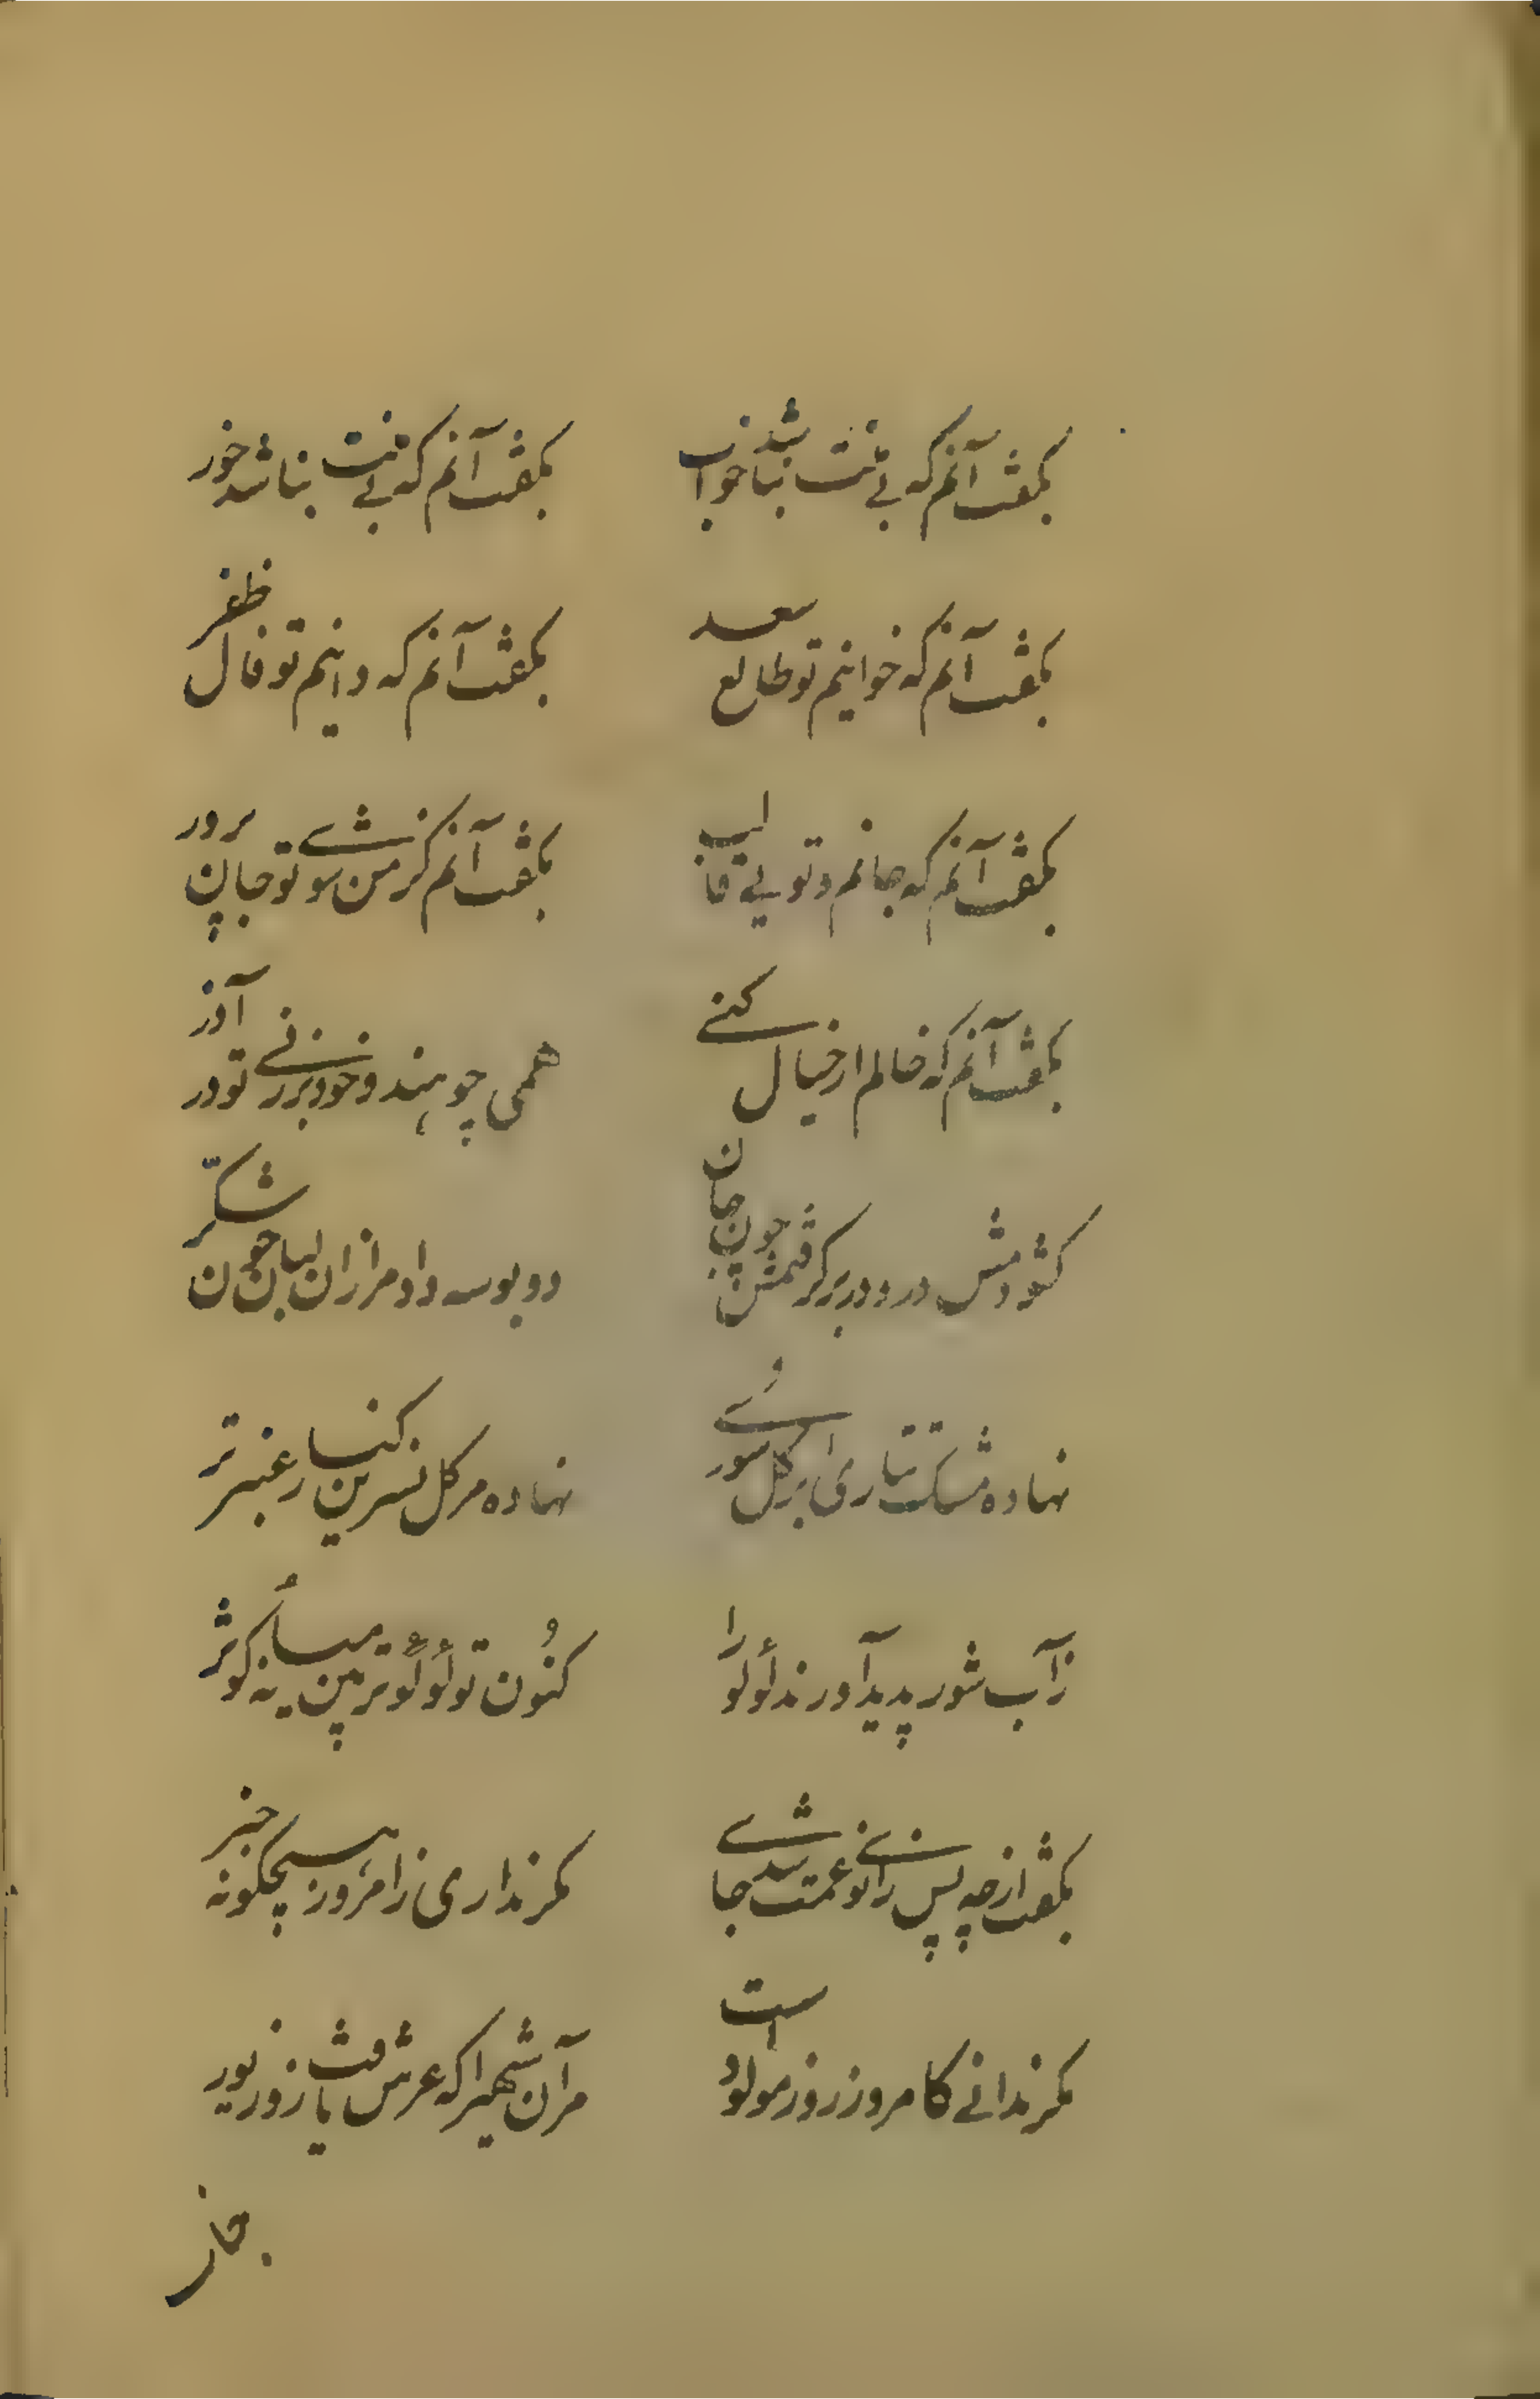 بگفت آنم که بی منت نباشد خواب بگفت آنم که بی منت نباشد خور
بگفت آنم که خوانیم تو طالع سعد بگفت آنم که دانیم تو فال ظفر
بگفت آنم که جانم و تویی قالب بگفت آنم کز من شوی تو جان پرور
بگفت آنم که خالم ار خیال کنی همی چو هندو خود برزنی تو در آذر
گشودمش در و در بر گرفتمش چون جان دو بوسه داد مرا زان لبان چون شکر
نهاده مشک تتاری بر گل سوری نهاده مر گل نسرین کنار عنبر تر
ز آب شور پدید آورند لؤلؤ را کنون تو لؤلؤ تر بین میانه کوثر
بگفت از چه پس زانوی غمت شد جای مگر نداری ز امروز هیچگونه خبر
مگر ندانی کامروز روز مولود است مر آن شهی را که عرش یافت از و زیور